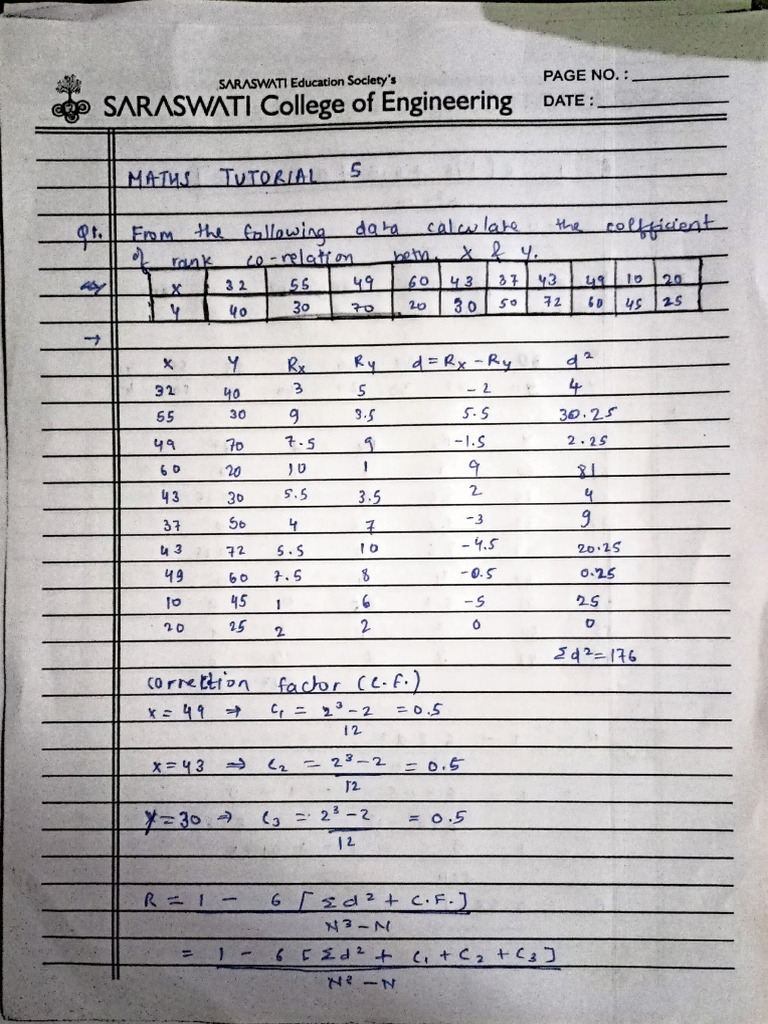 SARASWATI Education Society's
SARASWATI College of Engineering
PAGE NO. :
DATE :
MATHS TUTORIAL 5
Q1. From the following data calculate the coefficient
of rank co-relation betn. X & Y.
X 32 55 49 60 43 37 43 49 10 20
Y 40 30 70 20 30 50 72 60 45 25
→
X Y Rx Ry d = Rx - Ry d²
32 40 3 5 -2 4
55 30 9 3.5 5.5 30.25
49 70 7.5 9 -1.5 2.25
60 20 10 1 9 81
43 30 5.5 3.5 2 4
37 50 4 7 -3 9
43 72 5.5 10 -4.5 20.25
49 60 7.5 8 -0.5 0.25
10 45 1 6 -5 25
20 25 2 2 0 0
Σd² = 176
correction factor (C.F.)
x = 49 ⇒ C₁ = 2³ - 2 = 0.5
12
x = 43 ⇒ C₂ = 2³ - 2 = 0.5
12
Y = 30 → C₃ = 2³ - 2 = 0.5
12
R = 1 - 6 [Σd² + C.F.]
N³ - N
= 1 - 6 [Σd² + C₁ + C₂ + C₃]
N³ - N